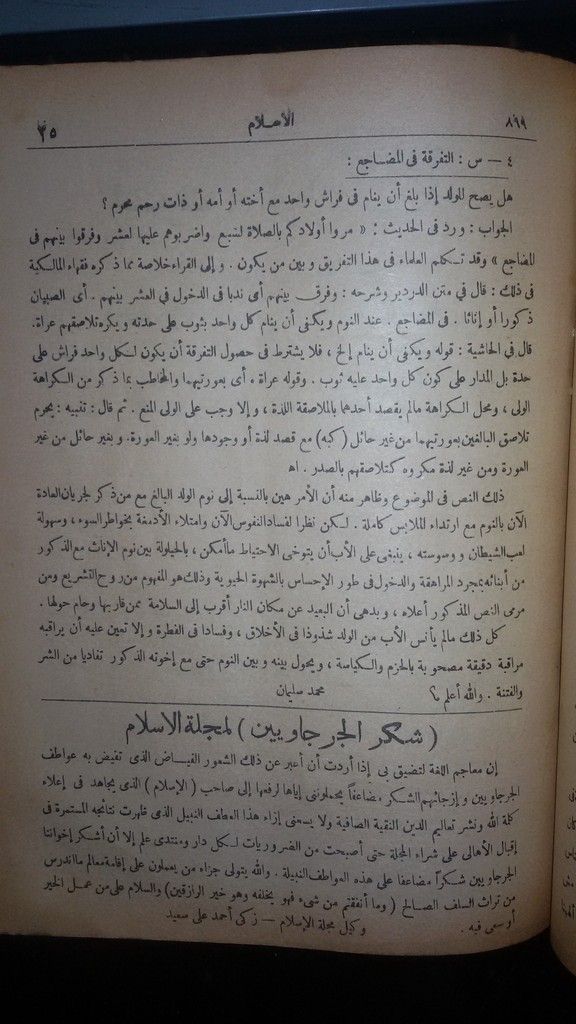 ٨٩٩ الإسلام ٣٥
٤ — س : التفرقة فى المضاجع :
هل يصح للولد إذا بلغ أن ينام فى فراش واحد مع أخته أو أمه أو ذات رحم محرم ؟
الجواب : ورد فى الحديث : « مروا أولادكم بالصلاة لسبع واضربوهم عليها لعشر وفرقوا بينهم فى
المضاجع » وقد تكلم العلماء فى هذا التفريق وبين من يكون . وإلى القراء خلاصة مما ذكره فقهاء المالكية
فى ذلك : قال فى متن الدردير وشرحه : وفرق بينهم أى ندبا فى الدخول فى العشر بينهم . أى الصبيان
ذكورا أو إناثا . فى المضاجع . عند النوم ويكفى أن ينام كل واحد بثوب على حدته ويكره تلاصقهم عراة.
قال فى الحاشية : قوله ويكفى أن ينام إلخ ، فلا يشترط فى حصول التفرقة أن يكون لكل واحد فراش على
حدة بل المدار على كون كل واحد عليه ثوب . وقوله عراة . أى بعورتيهما والمخاطب بما ذكر من الكراهة
الولى ، ومحل الكراهة مالم يقصد أحدهما بالملاصقة اللذة ، وإلا وجب على الولى المنع . ثم قال : تنبيه : يحرم
تلاصق البالغين بعورتيهما من غير حائل (كبه) مع قصد لذة أو وجودها ولو بغير العورة. وبغير حائل من غير
العورة ومن غير لذة مكروه كتلاصقهم بالصدر . اه
ذلك النص فى الموضوع وظاهر منه أن الأمر هين بالنسبة إلى نوم الولد البالغ مع من ذكر لجريان العادة
الآن بالنوم مع ارتداء الملابس كاملة . لكن نظرا لفساد النفوس الآن وامتلاء الأدمغة بخواطر السوء ، وسهولة
لعب الشيطان ووسوسته ، ينبغى على الأب أن يتوخى الاحتياط ما أمكن ، بالحيلولة بين نوم الإناث مع الذكور
من أبنائه بمجرد المراهقة والدخول فى طور الإحساس بالشهوة الحيوية وذلك هو المفهوم من روح التشريع ومن
مرمى النص المذكور أعلاه ، وبدهى أن البعيد عن مكان النار أقرب إلى السلامة ممن قاربها وحام حولها .
كل ذلك مالم يأنس الأب من الولد شذوذا فى الأخلاق ، وفسادا فى الفطرة وإلا تعين عليه أن يراقبه
مراقبة دقيقة مصحوبة بالحزم والكياسة ، ويحول بينه وبين النوم حتى مع إخوته الذكور تفاديا من الشر
والفتنة . والله أعلم ؟ محمد سليمان
( شكر الجرجاويين ) لمجلة الاسلام
إن معاجم اللغة لتضيق بى إذا أردت أن أعبر عن ذلك الشعور الفياض الذى تفيض به عواطف
الجرجاويين وإزجائهم الشكر مضاعفاً يحملوننى إياها لرفعها إلى صاحب (الإسلام) الذى يجاهد فى إعلاء
كلمة الله ونشر تعاليم الدين النقية الصافية ولا يسعنى إزاء هذا العطف النبيل الذى ظهرت نتائجه المستمرة فى
إقبال الأهالى على شراء المجلة حتى أصبحت من الضروريات لكل دار ومنتدى علم إلا أن أشكر إخواننا
الجرجاويين شكراً مضاعفا على هذه العواطف النبيلة . والله يتولى جزاء من يعملون على إقامة معالم ما اندرس
من تراث السلف الصالح ( وما أنفقتم من شىء فهو يخلفه وهو خير الرازقين) والسلام على من عمل الخير
أو سعى فيه . وكيل مجلة الإسلام — زكى أحمد على سعيد